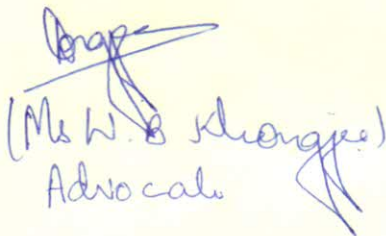 (Ms W. B Khongjee)
Advocate